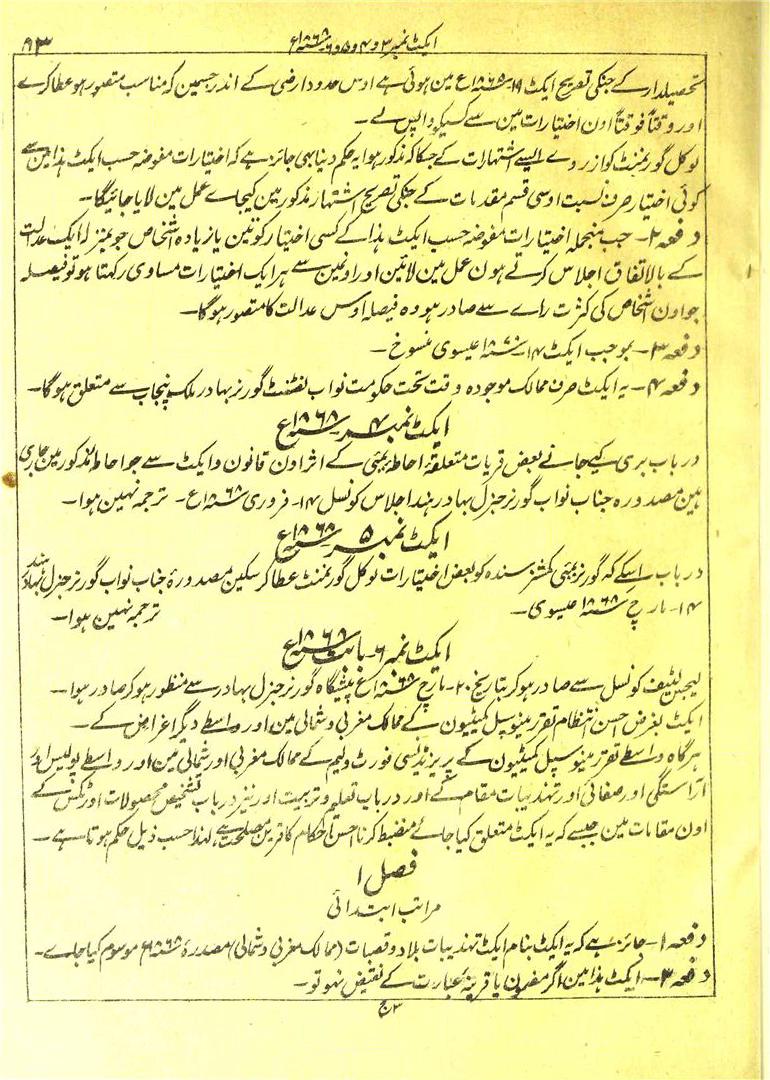 ایکٹ نمبر ۳ و ۴ و ۵ و ۶ ۱۸۶۸ع
۹۳
تحصیلدار کے جنکی تصریح ایکٹ ۱۹ ۱۸۶۵ع مین ہوئی ہے اوس حدود ارضی کے اندر جسمین کہ مناسب متصور ہو عطا کرے
اور وقتاً فوقتاً اون اختیارات مین سے کسیکو واپس لے۔
لوکل گورنمنٹ کو از روے ایسے اشتہارات کے جسکا کہ ذکور ہوا یہ حکم دینا بھی جائز ہے کہ اختیارات مفوضہ حسب ایکٹ ہذا مین سے
کوئی اختیار صرف نسبت اوسی قسم مقدمات کے جنکی تصریح اشتہار مذکور مین کیجاے عمل مین لایا جائیگا۔
دفعہ ۲۔ جب منجملہ اختیارات مفوضہ حسب ایکٹ ہذا کے کسی اختیار کو تین یا زیادہ اشخاص جو بمنزلہ ایک عدالت
کے بالاتفاق اجلاس کرتے ہون عمل مین لائین اور اونمین سے ہر ایک اختیارات مساوی رکھتا ہو تو فیصلہ
جو اون اشخاص کی کثرت راے سے صادر ہو وہ فیصلہ اوس عدالت کا متصور ہوگا۔
دفعہ ۳۔ بموجب ایکٹ ۱۴ ۱۸۷۰ عیسوی منسوخ۔
دفعہ ۴۔ یہ ایکٹ صرف ممالک موجودہ وقت تحت حکومت نواب لفٹنٹ گورنر بہادر ملک پنجاب سے متعلق ہوگا۔
ایکٹ نمبر ۴ ۱۸۶۸ع
درباب بری کیے جانے بعض قریات متعلقہ احاطہ بمبئی کے اثر اون قانون و ایکٹ سے جو احاطہ مذکور مین جاری
ہین مصدورہ جناب نواب گورنر جنرل بہادر ہند اجلاس کونسل ۱۴۔ فروری ۱۸۶۸ع۔ ترجمہ نہین ہوا۔
ایکٹ نمبر ۵ ۱۸۶۸ع
درباب اسکے کہ گورنر بمبئی کمشنر سندہ کو بعض اختیارات لوکل گورنمنٹ عطا کر سکین مصدورہ جناب نواب گورنر جنرل بہادر ہند
۱۴۔ مارچ ۱۸۶۸ عیسوی۔ ترجمہ نہین ہوا۔
ایکٹ نمبر ۶۔ بابت ۱۸۶۸ع
لیجس لیٹیف کونسل سے صادر ہو کر بتاریخ ۲۰۔ مارچ ۱۸۶۸ع پیشگاہ گورنر جنرل بہادر سے منظور ہو کر صادر ہوا۔
ایکٹ بغرض احسن انتظام تقرر میونسپل کمیٹیون کے ممالک مغربی و شمالی مین اور واسطے دیگر اغراض کے۔
ہرگاہ واسطے تقرر میونسپل کمیٹیون کے پریزیڈنسی فورٹ ولیم کے ممالک مغربی اور شمالی مین اور واسطے پولیس اور
آراستگی اور صفائی اور تہذیبات مقام کے اور درباب تعلیم و تربیت اور نیز درباب تشخیص محصولات اور ٹکس کے
اون مقامات مین جیسے کہ یہ ایکٹ متعلق کیا جائے منضبط کرنا احسن احکام کا قرین مصلحت ہے لہذا حسب ذیل حکم ہوتا ہے۔
فصل ۱
مراتب ابتدائی
دفعہ ۱۔ جائز ہے کہ یہ ایکٹ بنام ایکٹ تہذیبات بلاد و قصبات (ممالک مغربی و شمالی) مصدرہ ۱۸۶۸ع موسوم کیا جاے۔
دفعہ ۲۔ ایکٹ ہذا مین اگر مضمون یا قرینہ عبارت کے نقیض نہو تو۔
ج ۳